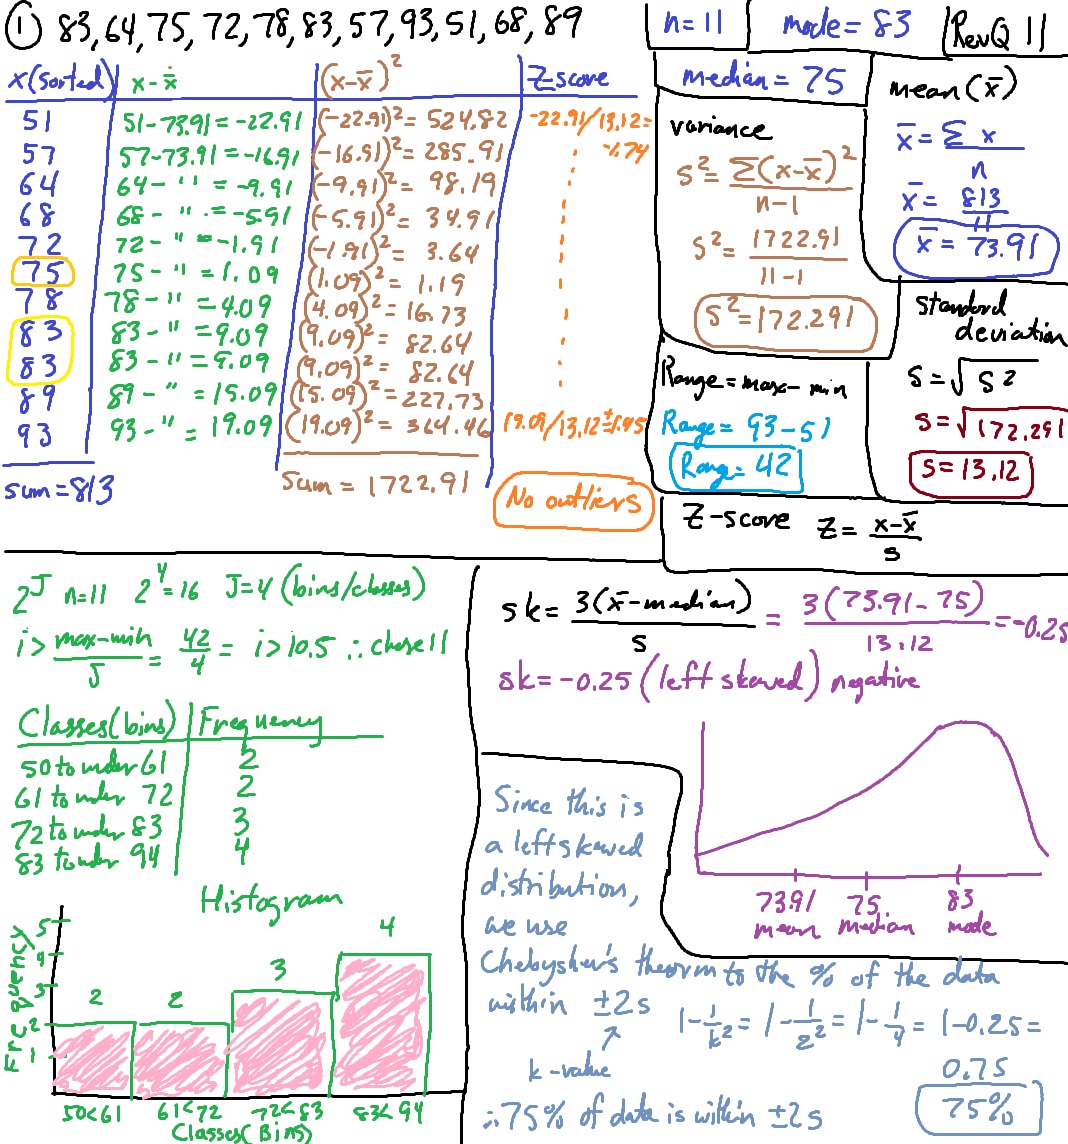 ① 83, 64, 75, 72, 78, 83, 57, 93, 51, 68, 89
n=11
mode = 83
RevQ 11
x (sorted) x-x̄ (x-x̄)² Z-score
51 51-73.91 = -22.91 (-22.91)² = 524.82 -22.91/13.12 = -1.74
57 57-73.91 = -16.91 (-16.91)² = 285.91
64 64- " = -9.91 (-9.91)² = 98.19
68 68- " = -5.91 (-5.91)² = 34.91
72 72- " = -1.91 (-1.91)² = 3.64
75 75- " = 1.09 (1.09)² = 1.19
78 78- " = 4.09 (4.09)² = 16.73
83 83- " = 9.09 (9.09)² = 82.64
83 83- " = 9.09 (9.09)² = 82.64
89 89- " = 15.09 (15.09)² = 227.73
93 93- " = 19.09 (19.09)² = 364.46 19.09/13.12 = 1.45
sum = 813
Sum = 1722.91
No outliers
median = 75
variance
S² = Σ(x-x̄)² / n-1
S² = 1722.91 / 11-1
S² = 172.291
mean (x̄)
x̄ = Σx / n
x̄ = 813 / 11
x̄ = 73.91
Range = max - min
Range = 93-51
Range = 42
standard deviation
S = √S²
S = √172.291
S = 13.12
Z-score Z = x-x̄ / s
2^J n=11 2^4 = 16 J=4 (bins/classes)
i > max-min / J = 42/4 = i > 10.5 ∴ chose 11
Classes (bins) Frequency
50 to under 61 2
61 to under 72 2
72 to under 83 3
83 to under 94 4
Histogram
Frequency
5
4
3
2
1
2 2 3 4
50<61 61<72 72<83 83<94
Classes (Bins)
sk = 3(x̄-median) / s = 3(73.91-75) / 13.12 = -0.25
sk = -0.25 (left skewed) negative
73.91 75 83
mean median mode
Since this is
a left skewed
distribution,
we use
Chebyshev's theorm to the % of the data
within ±2s
k-value
1-1/k² = 1-1/2² = 1-1/4 = 1-0.25 =
0.75
75%
∴ 75% of data is within ±2s